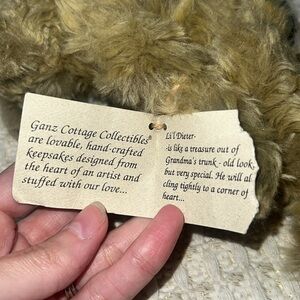 Ganz Cottage Collectibles®
are lovable, hand-crafted
keepsakes designed from
the heart of an artist and
stuffed with our love...
Li'l Dieter-
-is like a treasure out of
Grandma's trunk - old look,
but very special. He will al
cling tightly to a corner of
heart...